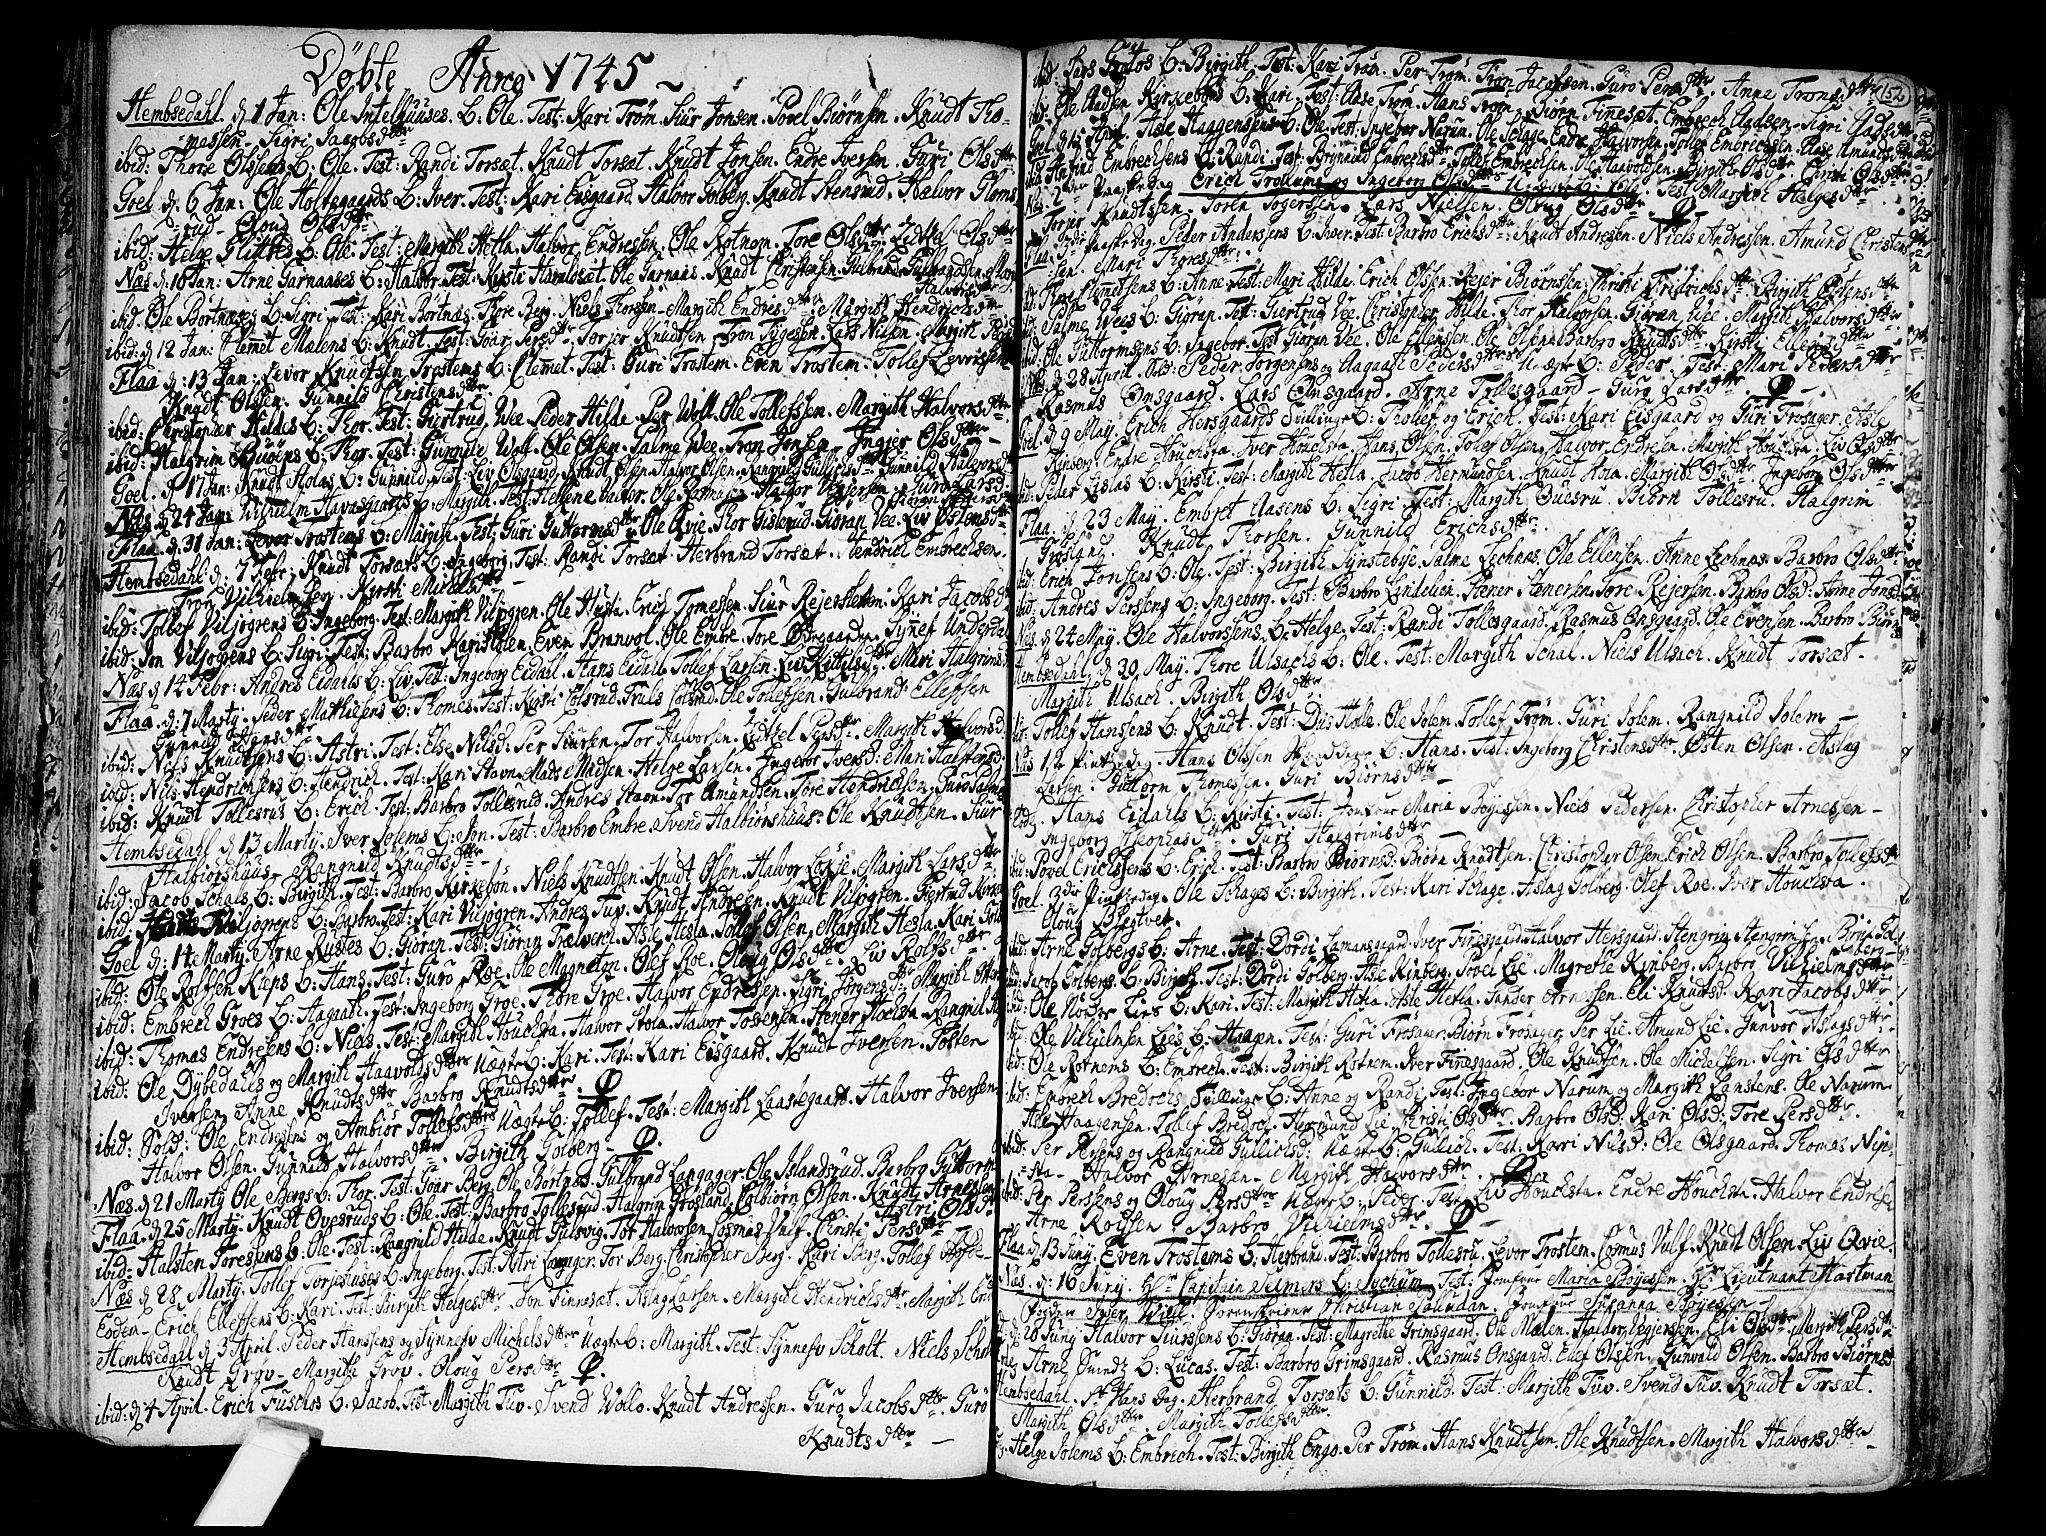 Döbte Anno 1745
Hembsedahl d. 1 Jan: Ole Intelhuuses b. Ole. Test: Kari Tröm. Siur Jonsen. Povel Biörnsen. Knudt Tho-
messen. Sigri Jacobsdttr
ibid: Thore Olssens b: Ole. Test: Randi Torsæt. Knudt Torsæt. Knudt Jonsen. Endre Iversen. Guri Olsdttr
Goel d: 6 Jan: Ole Holtegaards b: Iver. Test: Kari Eisgaard. Halvor Golberg. Knudt Stensrud. Halvor
rud. Oloug Olsdttr
ibid: Helge b: Ole. Test: Margith Hetla. Halvor Endresen. Ole Rotnem. Tore Olsdttr. Olsdttr
Næs d: 10 Jan: Arne Garnaases b: Halvor. Test: Ole Garnaas. Knudt Christensen. Gulbrand Gulbrandsen.
Halvorsdttr
ibid. Ole Börtnæses b: Sigri. Test: Kari Börtnæs. Thore Berg. Niels Thorsen. Margith Endresdttr. Margith Hendrichsdttr
ibid: d: 12 Jan: Clemet Mælens b: Knudt. Test: Goar Persdttr. Torjer Knudtsen. Tron Tygesen. Lars Nielsen. Margith
Flaa d: 13 Jan: Levor Knudtsen Trostems b: Clemet. Test: Guri Trostem. Even Trostem. Tollef Levorsen
Knudt Olssen. Gunnild Christensdttr
ibid: Christopher Hildes b: Thor. Test: Giertrud Vee. Peder Hilde. Per Woll. Ole Tollefsen. Margith Halvorsdttr
ibid: Halgrim b: Thor. Test: Gunnild Woll. Ole Olsen. Palme Vee. Tron Jonsen. Ingier Olsdttr
Goel. d: 17 Jan: Knudt b: Gunnild. Test: Liv Olsgaard. Knudt Olsen. Halvor Olsen. Gunnild Halvorsd
Næs d: 24 Jan: Vilhelm Havasgaards b: Margith. Test: Hellene. Ole Rasmussen. Halvor
Flaa d: 31 Jan: Levor Trostems b: Margith. Test: Guri Guttormsdttr. Ole Qvie. Thor Gislerud. Giöran Vee. Liv Östensdttr
Hembsedahl d: 7 Febr. Knudt Torsæts b: Ingeborg. Test: Randi Torsæt. Herbrand Torsæt. Hendrich Embrechsen.
Tron Vilhelmsen. Kirsti Michelsdttr
ibid: Tollef Viljogrens b: Ingeborg. Test: Margith Viljogren. Ole. Erich Tomessen. Siur. Kari Jacobsd
ibid: Jon Viljogrens b: Sigri. Test: Barbro. Even. Ole Embre. Tore. Synnef Underdal
Næs d: 14 Febr: Andres Eidals b: Liv. Test: Ingeborg Eidal. Hans Eidal. Tollef Larsen. Liv. Mari Halgrimsd
Flaa d: 7 Marty. Peder Mathiesens b: Thomes. Test: Kirsti Colsrud. Truls Colsrud. Ole Tollefsen. Gulbrandt Ellefsen
Gunnild Hansdttr
ibid: Niels Knudtsens b: Astri. Test: Else Nilsd: Per Siursen. Tor Halvorsen. Persdttr. Margith Halvorsd
ibid: Nils Hendrichsens b: Hendrich. Test: Kari Stavn. Mads Madsen. Helge Larsen. Ingebor Iversd:
ibid: Knudt Tollesrus b: Erich. Test: Barbro Tollesrud. Andres Stavn. Tor Amundsen. Tore Hendrichsen. Guro
Hembsedahl d 13 Marty. Iver Solems b: Jon. Test: Barbro Embre. Svend Halbiörshuus. Ole Knudtsen. Siur
Halbiörshuus. Rangnild Knudtsdttr
ibid: Jacob Schals b: Birgith. Test: Barbro Kirkebön. Niels Knudtsen. Knudt Olsen. Halvor. Margith Larsdttr
ibid: Viljogrens b: Barbro. Test: Kari Viljogren. Andres Tuv. Knudt Andresen. Knudt Viljogren. Giertrud
Goel d: 14 Marty. Arne Rustes b: Giöran. Test: Giöran. Asle Hesla. Tollef Olsen. Margith Hesla. Kari
ibid: Ole Rolfsen Kleps b: Hans. Test: Guro Roe. Ole Magneton. Olef Roe. Oloug Olsdttr. Liv Rolfsdttr
ibid: Embrech Groes b: Aagaath. Test: Ingeborg Groe. Thore Groe. Halvor Endresen. Sigri Jörgensdttr. Margith
ibid: Thomas Endresens b: Niels. Test: Margith Houchsta. Halvor Stola. Halvor Torstensen. Stener Hochsta.
ibid: Ole Dybedals og Margith Haavoldsdttrs Uægte b: Kari. Test: Kari Eisgaard. Knudt Iversen. Tosten
Iversen. Anne Knudtsdttr. Barbro Knudtsdttr
ibid: Sold: Ole Endresens og Ambiör Tollefsdttrs Uægte b: Tollef. Test: Margith Laastegaard. Halvor Iversen
Halvor Olsen. Gunnild Halvorsdttr. Birgith Golberg
Næs. d 21 Marty Ole Bergs b: Thor. Test: Goar Berg. Ole Börtnes. Gulbrand Langager. Ole Islandsrud. Barbro Guttorms
Flaa d 25 Marty. Knudt Ovesruds b: Ole. Test: Barbro Tollesrud. Halgrim Grösland. Colbiörn Olsen. Knudt Arnesen
Astri Olsd
ibid: Halsten Toresens b: Ole. Test: Rangnild Hilde. Knudt Gulsvig. Tor Halvorsen. Cosmus Vulf. Christi Persdttr
Næs d 28 Marty. Tollef Torjeshuses b: Ingeborg. Test: Astri Langager. Tor Berg. Christopher Berg. Kari Berg. Tollef
Eodem. Erich Ellefsens b: Kari. Test. Birgith Helgesdttr. Jon Finnesæt. Aslag Larsen. Margith Hendrichsdttr. Margith
Hembsedahl d 3 April. Peder Hanssens og Synnefv Michelsdttr Uægte b: Margith. Test: Synnefv Scholt. Niels
Knudt Gröv. Margith Gröv. Oloug Persdttr
ibid: d: 4 April. Erich Fuschos b. Jacob. Test: Margith Tuv. Svend Wollo. Knudt Andressen. Guro Jacobsdttr. Guro
Knudtsdttr
152
ibid Lars b: Birgith. Test: Kari Tröm. Per Tröm. Tron Jacobsen. Guro Persdttr. Anne Tronsdttr
Ole Aadsen Kirkeböns b: Kari. Test: Aase Tröm. Hans Tröm. Biörn Finneset. Embrech Aadsen. Sigri Aadsdttr
Asle Haagensens b: Ole. Test: Ingebor Narum. Ole Schage. Endre Halvorsen. Tollef Embrechsen.
Embrechsens b: Randi. Test: Brynnild Embrechsdttr. Tollef Embrechsen. Ole Haavoldsen. Birgith Olsdttr
2den Paaskedag Erich Trollums og Ingeborg Olsdttrs Uægte b: Test: Margith Helgesdttr
Torjer Knudtssen. Soren Togersen. Lars Nielsen. Olrug Olsdttr
Flaa 3die Paaskedag. Peder Andersens b: Iver. Test: Barbro Erichsdttr. Knudt Andresen. Niels Andresen. Amund Christen-
sen. Mari Thoresdttr
b: Anne. Test: Mari Hilde. Erich Olssen. Rejer Biörnssen. Christi Fridrichsdttr. Birgith Östensdttr
Palme Vees b: Giöran. Test: Giertrud Vee. Christopher Hilde. Thor Halvorsen. Giöran Vee. Margith Halvorsdttr
Ole Guttormsens b: Ingebor. Test: Giöran Vee. Ole Ellenssen. Ole Olsen. Barbro Knudtsdttr. Kirsti Ellensdttr
d 28 April. Peder Jorgensens og Aagaath Pedersdttrs Uægte b: Peder. Test: Mari Pedersdttr
Rasmus Onsgaard. Lars Onsgaard. Arne Tollesgaard. Guro Larsdttr
Goel d 9 May. Erich Hersgaards Tvillinge b: Thollef og Erich. Test: Kari Eisgaard og Guri Trösager. Asle
Kinberg. Endre Houchsta. Iver Houchsta. Hans Olsen. Tollef Olsen. Halvor Endresen. Margith Houchsta. Liv Olsdttr
Peder Eislas b: Kirsti. Test: Margith Hetla. Jacob Hermundsen. Knudt Hoia. Margith Olsdttr. Ingeborg Olsdttr
Flaa. d. 23 May. Embret Aasens b: Sigri. Test: Margith Ouesru. Biörn Tollesru. Halgrim
Grösland. Knudt Thorsen. Gunnild Erichsdttr
Erich Jonssens b: Ole. Test: Birgith Synstebye. Palme Lechnas. Ole Ellensen. Anne Lechnas. Barbro Olsdttr
ibid: Andres Perssens b: Ingeborg. Test: Barbro Lindelien. Stener Stenersen. Tore Rejersen. Barbro Olsd: Anne Jonsd
Næs d 24 May. Ole Halvorssens b: Helge. Test: Randi Tollesgaard. Rasmus Onsgaard. Ole Evensen. Barbro Biörnsd
Hembsedahl d 30 May. Thore Ulsachs b: Ole. Test: Margith Schal. Niels Ulsach. Knudt Torsæt
Margith Ulsach. Birgith Olsdttr
Tollef Hanssens b: Knudt. Test: Dys Holle. Ole Solem. Tollef Tröm. Guri Solem. Rangnild Solem
Næs 1ste Pintzedag. Hans Olssen b: Hans. Test: Ingeborg Christensdttr. Östen Olsen. Aslag
Larsen. Guttorm Thomessen. Guri Biörnsdttr
Eod. Hans Eidals b: Kirsti. Test: Jomfrue Maria Böyessen. Niels Pedersen. Christopher Arnessen
Ingeborg dttr. Guri Halgrimsdttr
ibid: Povel Erichssens b: Erich. Test: Barbro Biörnsd: Biörn Knudtsen. Christopher Olsen. Erich Olsen. Barbro Tollefsdttr
Goel 2den Pintzedag. Ole Schages b: Birgith. Test: Kari Schage. Aslag Golberg. Olef Roe. Iver Houchsta.
Oloug
ibid: Arne Golbergs b: Arne. Test: Dordi Lamansgaard. Iver Finesgaard. Halvor Hersgaard. Stengrim Stengrimsen.
Jacob Golbergs b: Birgith. Test: Dordi Golberg. Asle Kinberg. Povel Lie. Magrethe Kinberg. Barbro Vilhelmsdttr
Ole Nödre Lies b: Kari. Test: Margith Hetla. Asle Hetla. Sander Arnessen. Eli Knudtsd: Kari Jacobsdttr
Ole Vilhelmsen Lies b: Haagen. Test: Guri Trösager. Biörn Trösager. Per Lie. Amund Lie. Gunvor Aslagsdttr
ibid: Ole Rotnems b: Embrech. Test: Birgith Rotnem. Iver Finesgaard. Ole Knudtsen. Ole Michelsen. Sigri Olsdttr
ibid: Embrech Bredochs Tvillinge b: Anne og Randi. Test: Ingebor Narum og Margith. Ole Narum
Asle Haagensen. Tollef Bredoch. Hermund Lie. Christi Olsdttr. Barbro Olsd: Kari Olsd: Tore Persdttr
ibid: Per og Rangnild Gullichsd: Uægte b: Gullich. Test: Kari Nilsd: Ole Olsgaard. Thomas
Halvor Arnesen. Margith Halvorsdttr
ibid: Per Perssens og Oloug Persdttrs Uægte b: Peder. Test: Liv Houchsta. Endre Houchsta. Halvor Endresen
Arne Rolfsen. Barbro Vilhelmsdttr
Flaa d 13 Juny. Even Trostems b: Herbrand. Test: Barbro Tollesru. Levor Trostem. Cosmus Vulf. Knudt Olsen. Liv Qvie.
Næs d: 16 Juny. Hr Capitain Selmers b: Jochum. Test: Jomfrue Maria Böyessen. Hr Lieutnant Hartman
Fogden Iver Wiel. Sorenskriver Christian. Jomfrue Susanna Böyessen
d: 20 Juny Halvor Siurssens b: Giöran. Test: Magrethe Grimsgaard. Ole Mælen. Halvor Vegiersen. Eli Olsdttr. Margith Persdttr
Arne Sundz b: Lucas. Test: Barbro Grimsgaard. Rasmus Onsgaard. Elef Olsen. Gunvald Olsen. Barbro Biörnsd
Hembsedahl. St Hans Dag. Herbrand Torsæts b: Gunnild. Test: Margith Tuv. Svend Tuv. Knudt Torsæt.
Margith Olsdttr. Margith Tollefsdttr
Helge Solems b: Embrich. Test: Birgith Engo. Per Tröm. Hans Knudtsen. Ole Knudtsen. Margith Halvorsdttr